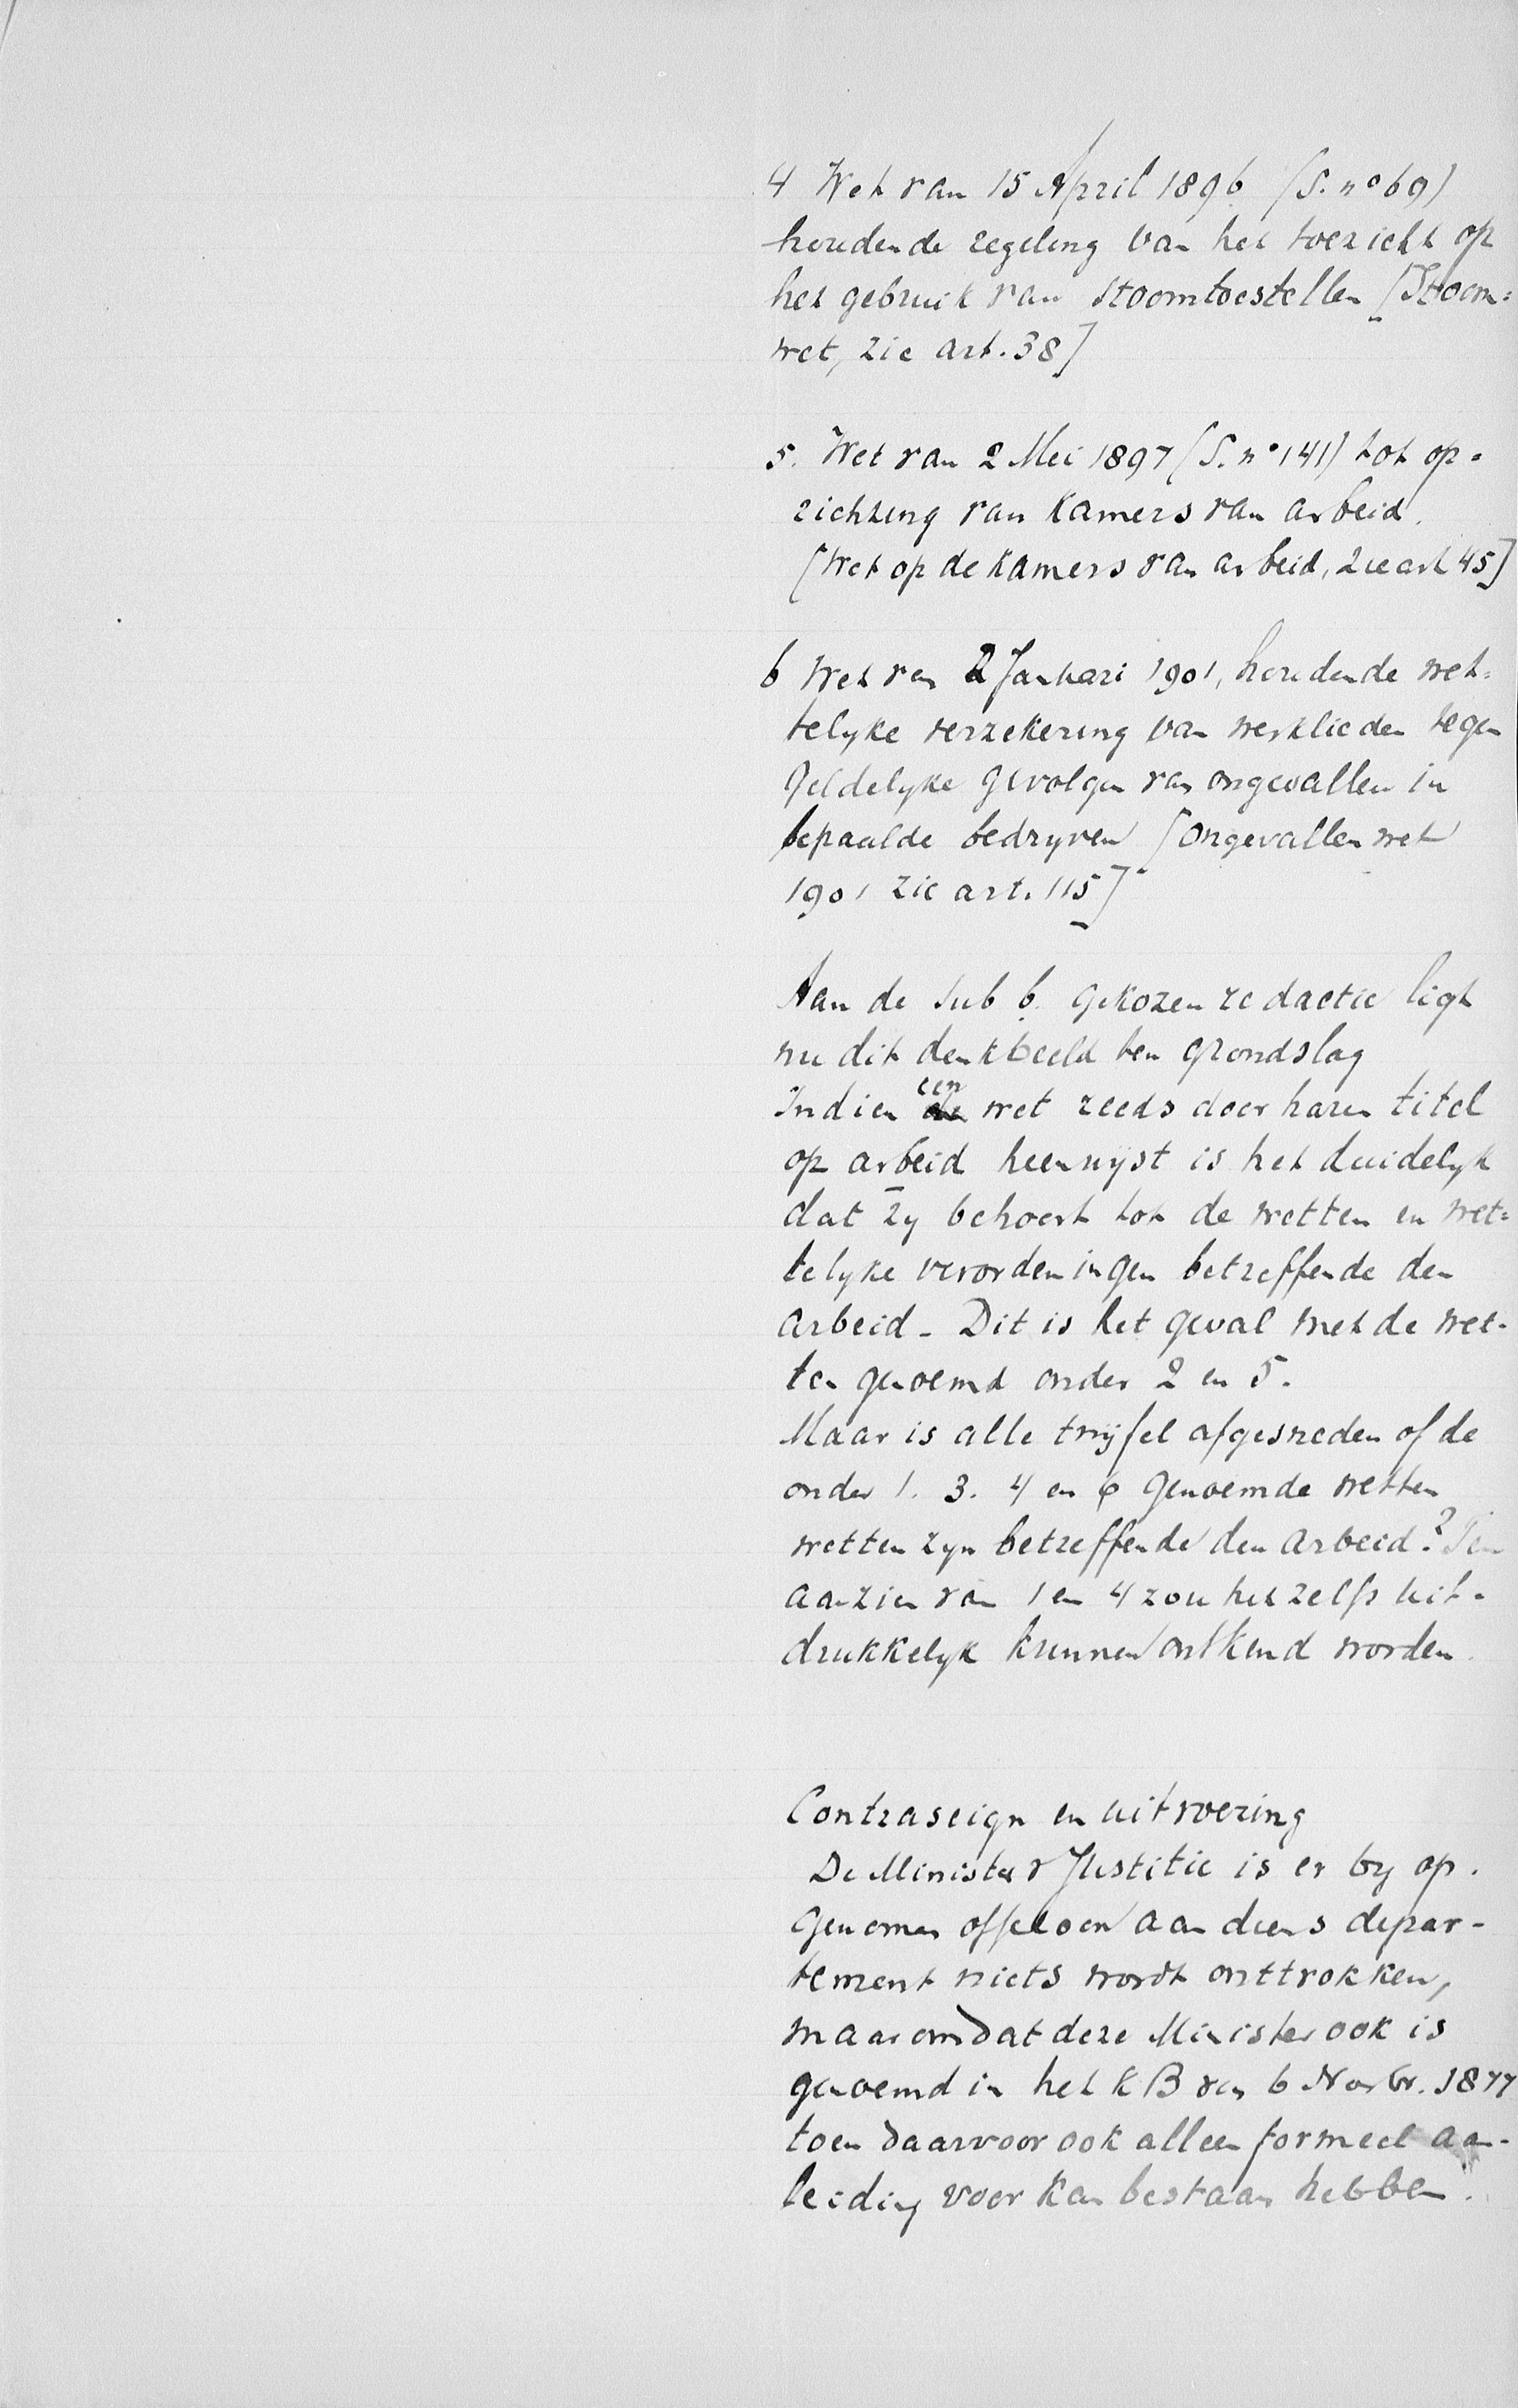 4 Wet van 15 April 1896 (S. no 69)
houdende regeling van het toezicht op
het gebruik van stoomtoestellen [Stoom=
wet, zie art. 38]
5. Wet van 2 Mei 1897 (S. no 141) tot op=
richting van Kamers van arbeid.
[Wet op de Kamers van arbeid, zie art 45]
6 Wet van 2 Januari 1901, houdende wet=
telyke verzekering van werklieden tegen
geldelyke gevolgen van ongevallen in
bepaalde bedryven [Ongevallenwet
1901 zie art. 115]
Aan de sub b. gekozen redactie ligt
nu dit denkbeeld ten grondslag
Indien een wet reeds door haren titel
op arbeid heenwijst is het duidelyk
dat zy behoort tot de wetten en wet=
telyke verordeningen betreffende den
arbeid - Dit is het geval met de wet-
ten genoemd onder 2 en 5.
Maar is alle twijfel afgesneden of de
onder 1. 3. 4 en 6 genoemde wetten
wetten zyn betreffende den arbeid? Ten
aanzien van 1 en 4 zou het zelfs uit-
drukkelyk kunnen ontkend worden.
Contraseign en uitvoering
De Minister v Justitie is er by op-
genomen offschoon aan diens depar-
tement niets wordt onttrokken,
maar omdat deze Minister ook is
genoemd in het KB van 6 Novbr. 1877
toen daarvoor ook alleen formeel aan-
leiding voor kan bestaan hebben.